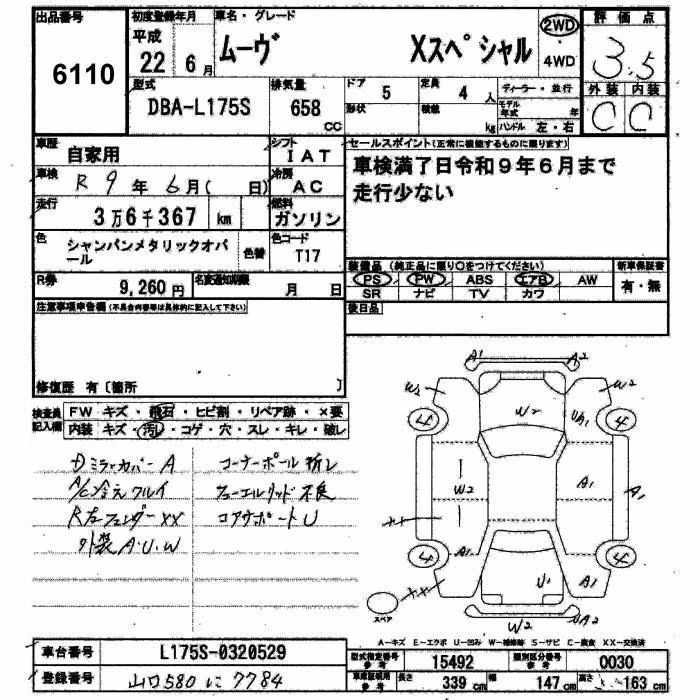 出品番号
6110
初度登録年月
平成
22 6月
車名・グレード
ムーヴ Xスペシャル
2WD
4WD
評価点
3.5
外装 内装
C C
型式
DBA-L175S
排気量
658
CC
ドア
5
定員
4 人
形状
積載
kg
ディーラー・並行
モデル年式 年
ハンドル 左・右
車歴
自家用
シフト
IAT
車検
R 9 年 6月( 日)
冷房
AC
走行
3万6千367 km
燃料
ガソリン
色
シャンパンメタリックオパール
色替
色コード
T17
R券
9,260円
名変通知期限
月 日
セールスポイント(正常に機能するものに限ります)
車検満了日令和9年6月まで
走行少ない
装備品 (純正品に限り○をつけてください)
PS PW ABS エアB AW
SR ナビ TV カワ
新車保証書
有・無
後日品
注意事項申告欄(不具合内容等は具体的に記入して下さい)
修復歴 有〔箇所 〕
検査員記入欄
FW キズ・飛石・ヒビ割・リペア跡・×要
内装 キズ・汚レ・コゲ・穴・スレ・キレ・破レ
Dミラーカバー A
A/C冷えワルイ
R左フェンダー XX
外装 A.U.W
コーナーポール折レ
フューエルリッド不良
コアサポートU
A1 A2
W2 W2
4 W2 UA1 4
W2 A1 A1
XX
4 A1 4
XX U1 A1
スペア
W2 UA2
A−キズ E−エクボ U−凹み W−補修跡 S−サビ C−腐食 XX−交換済
車台番号
L175S-0320529
登録番号
山口580 に 7784
型式指定番号
参考
15492
類別区分番号
参考
0030
車庫証明用
参考
長さ 339 cm
幅 147 cm
高さ 163 cm